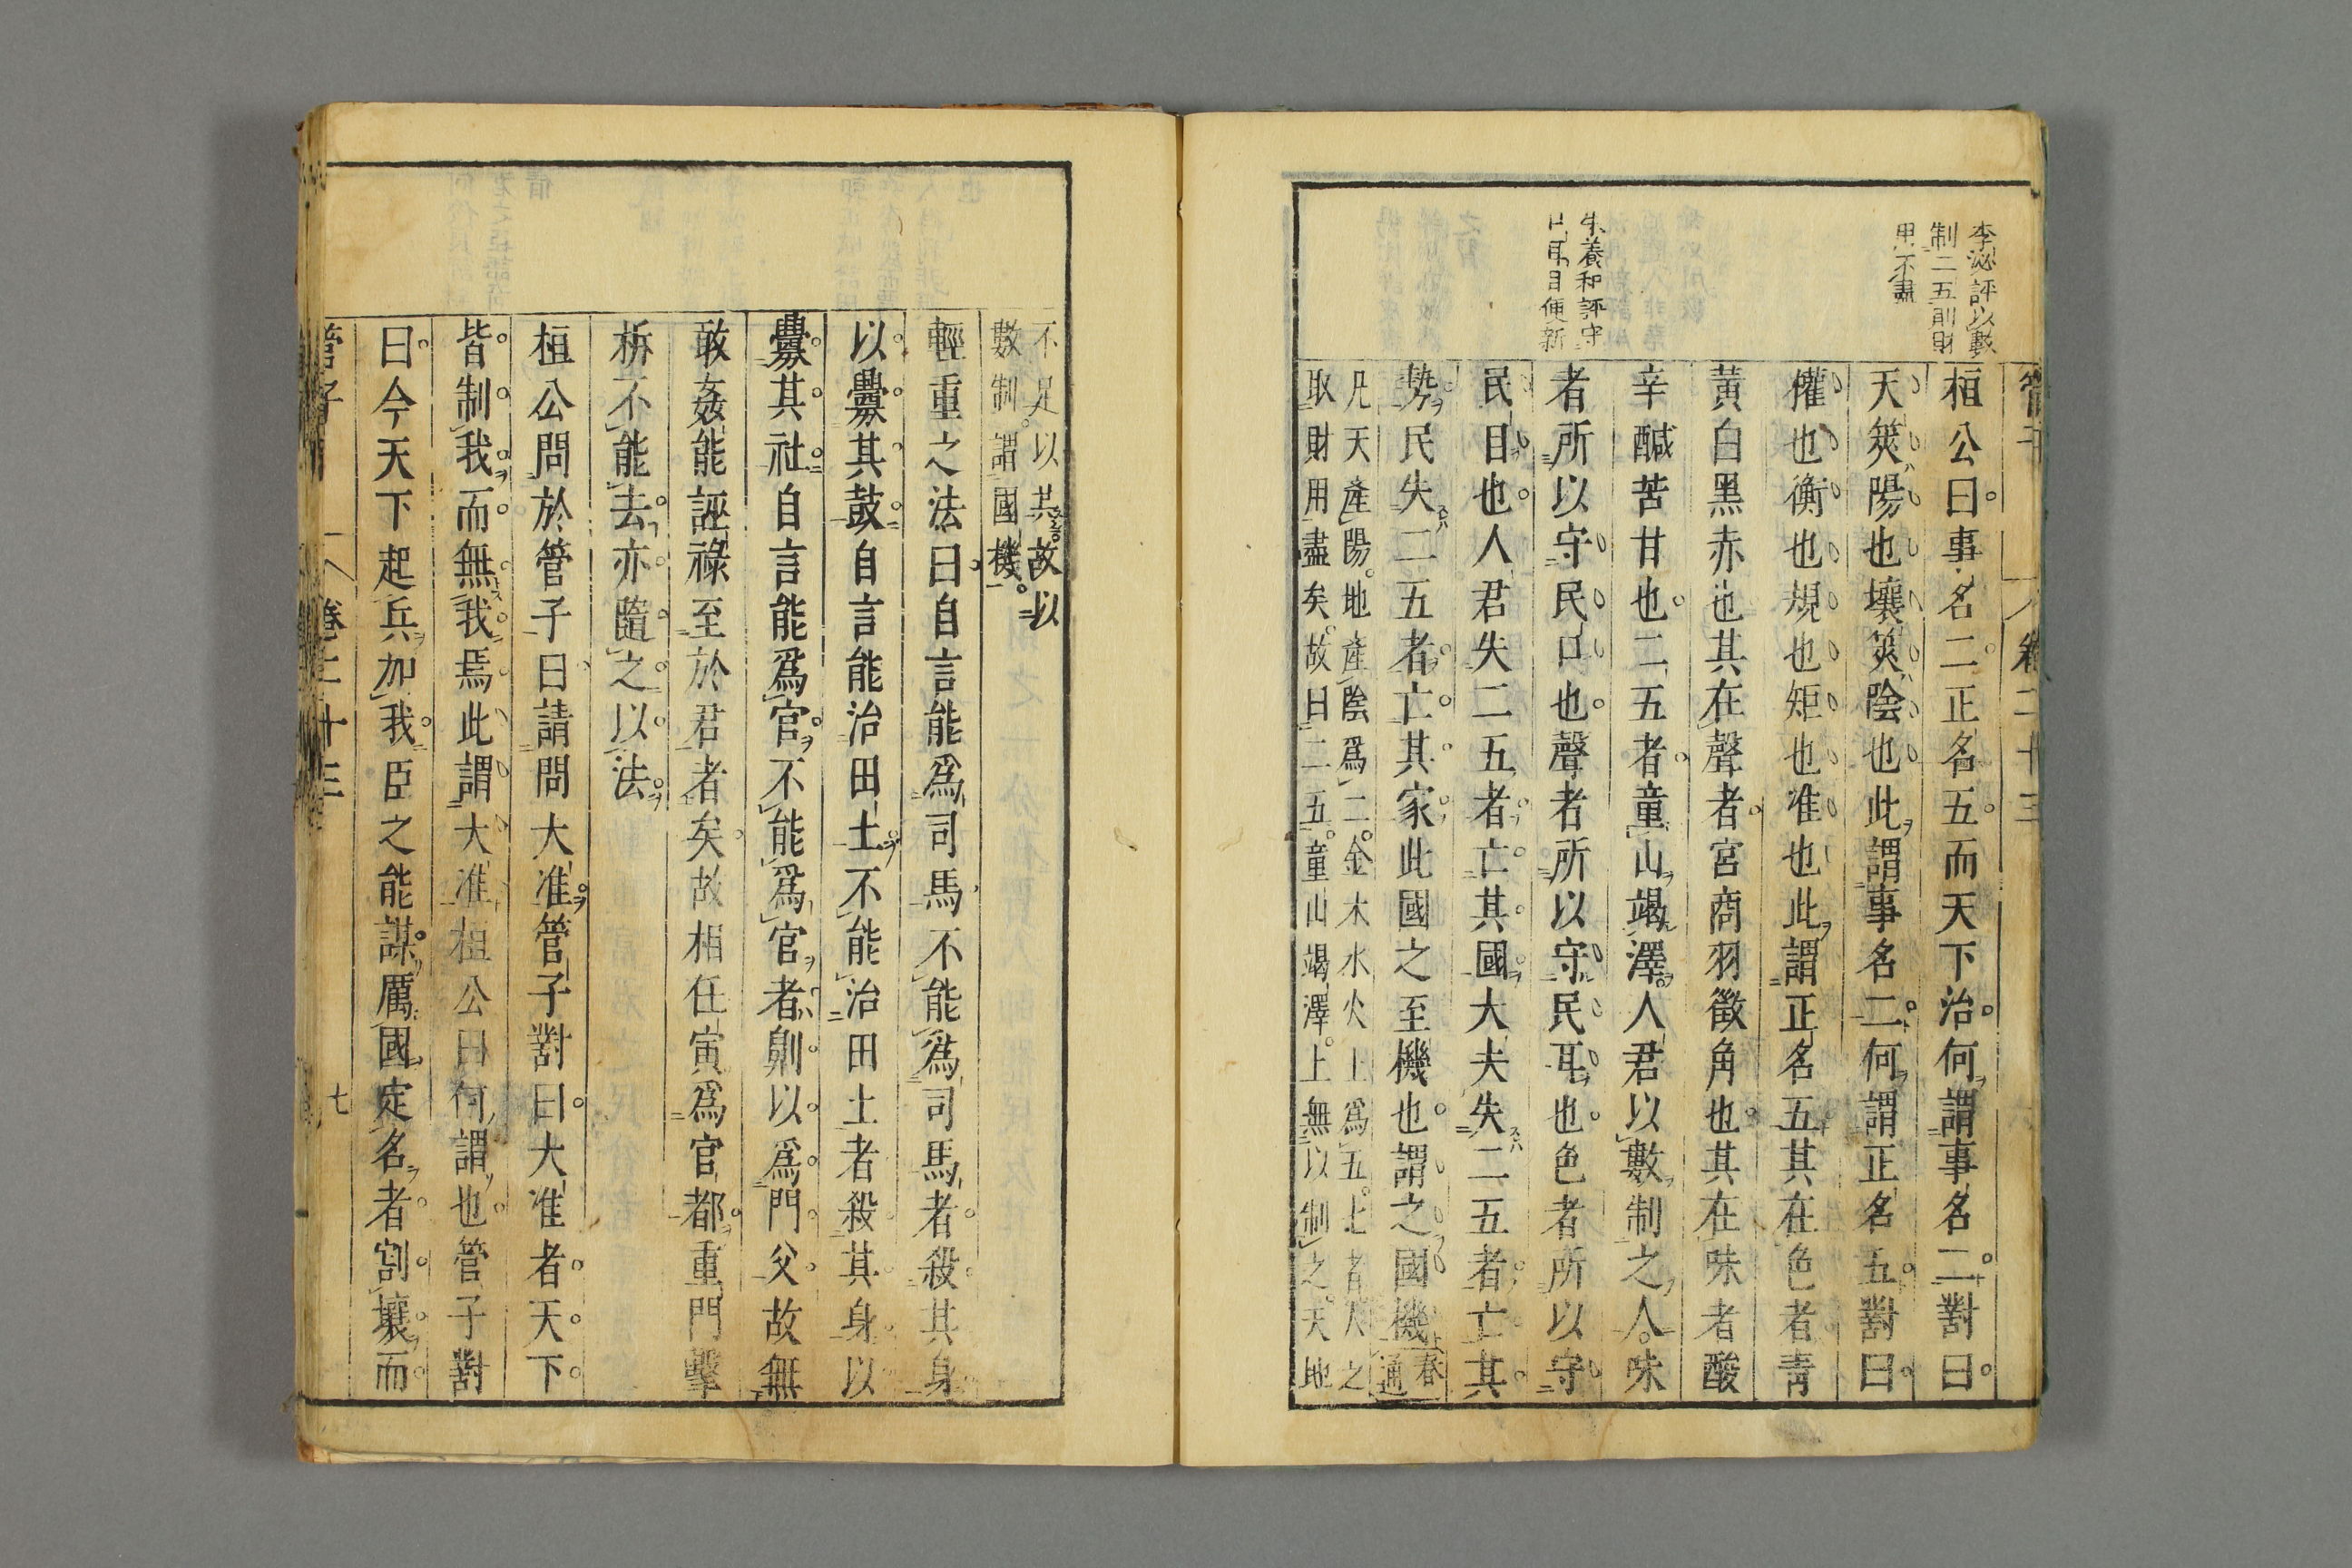 管子
卷二十三
李泌評以數
制二五則財
用不盡
朱養和評守
口耳目便新
桓公曰事名二正名五而天下治何謂事名二對曰
天筴陽也壤筴陰也此謂事名二何謂正名五對曰
權也衡也規也矩也准也此謂正名五其在色者青
黃白黑赤也其在聲者宮商羽徵角也其在味者酸
辛醎苦甘也二五者童山竭澤人君以數制之人味
者所以守民口也聲者所以守民耳也色者所以守
民目也人君失二五者亡其國大夫失二五者亡其
勢民失二五者亡其家此國之至機也謂之國機
春
通
凡天產陽地產陰爲二金木水火土爲五上者人之
取財用盡矣故曰二五童山竭澤上無以制之天地
不足以共故以
數制謂國機
輕重之法曰自言能爲司馬不能爲司馬者殺其身
以釁其鼓自言能治田土不能治田土者殺其身以
釁其社自言能爲官不能爲官者劓以爲門父故無
敢姦能誣祿至於君者矣故相任寅爲官都重門擊
柝不能去亦隨之以法
桓公問於管子曰請問大准管子對曰大准者天下
皆制我而無我焉此謂大准桓公曰何謂也管子對
曰今天下起兵加我臣之能謀厲國定名者割壤而
管子
卷二十三
七